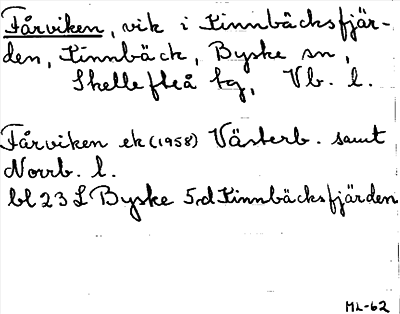 Fårviken, vik i Kinnbäcksfjär-
den, Kinnbäck, Byske sn,
Skellefteå kg, Vb. l.
Fårviken ek (1958) Västerb. samt
Norrb. l.
bl 23 L Byske 5,d Kinnbäcksfjärden
ML-62